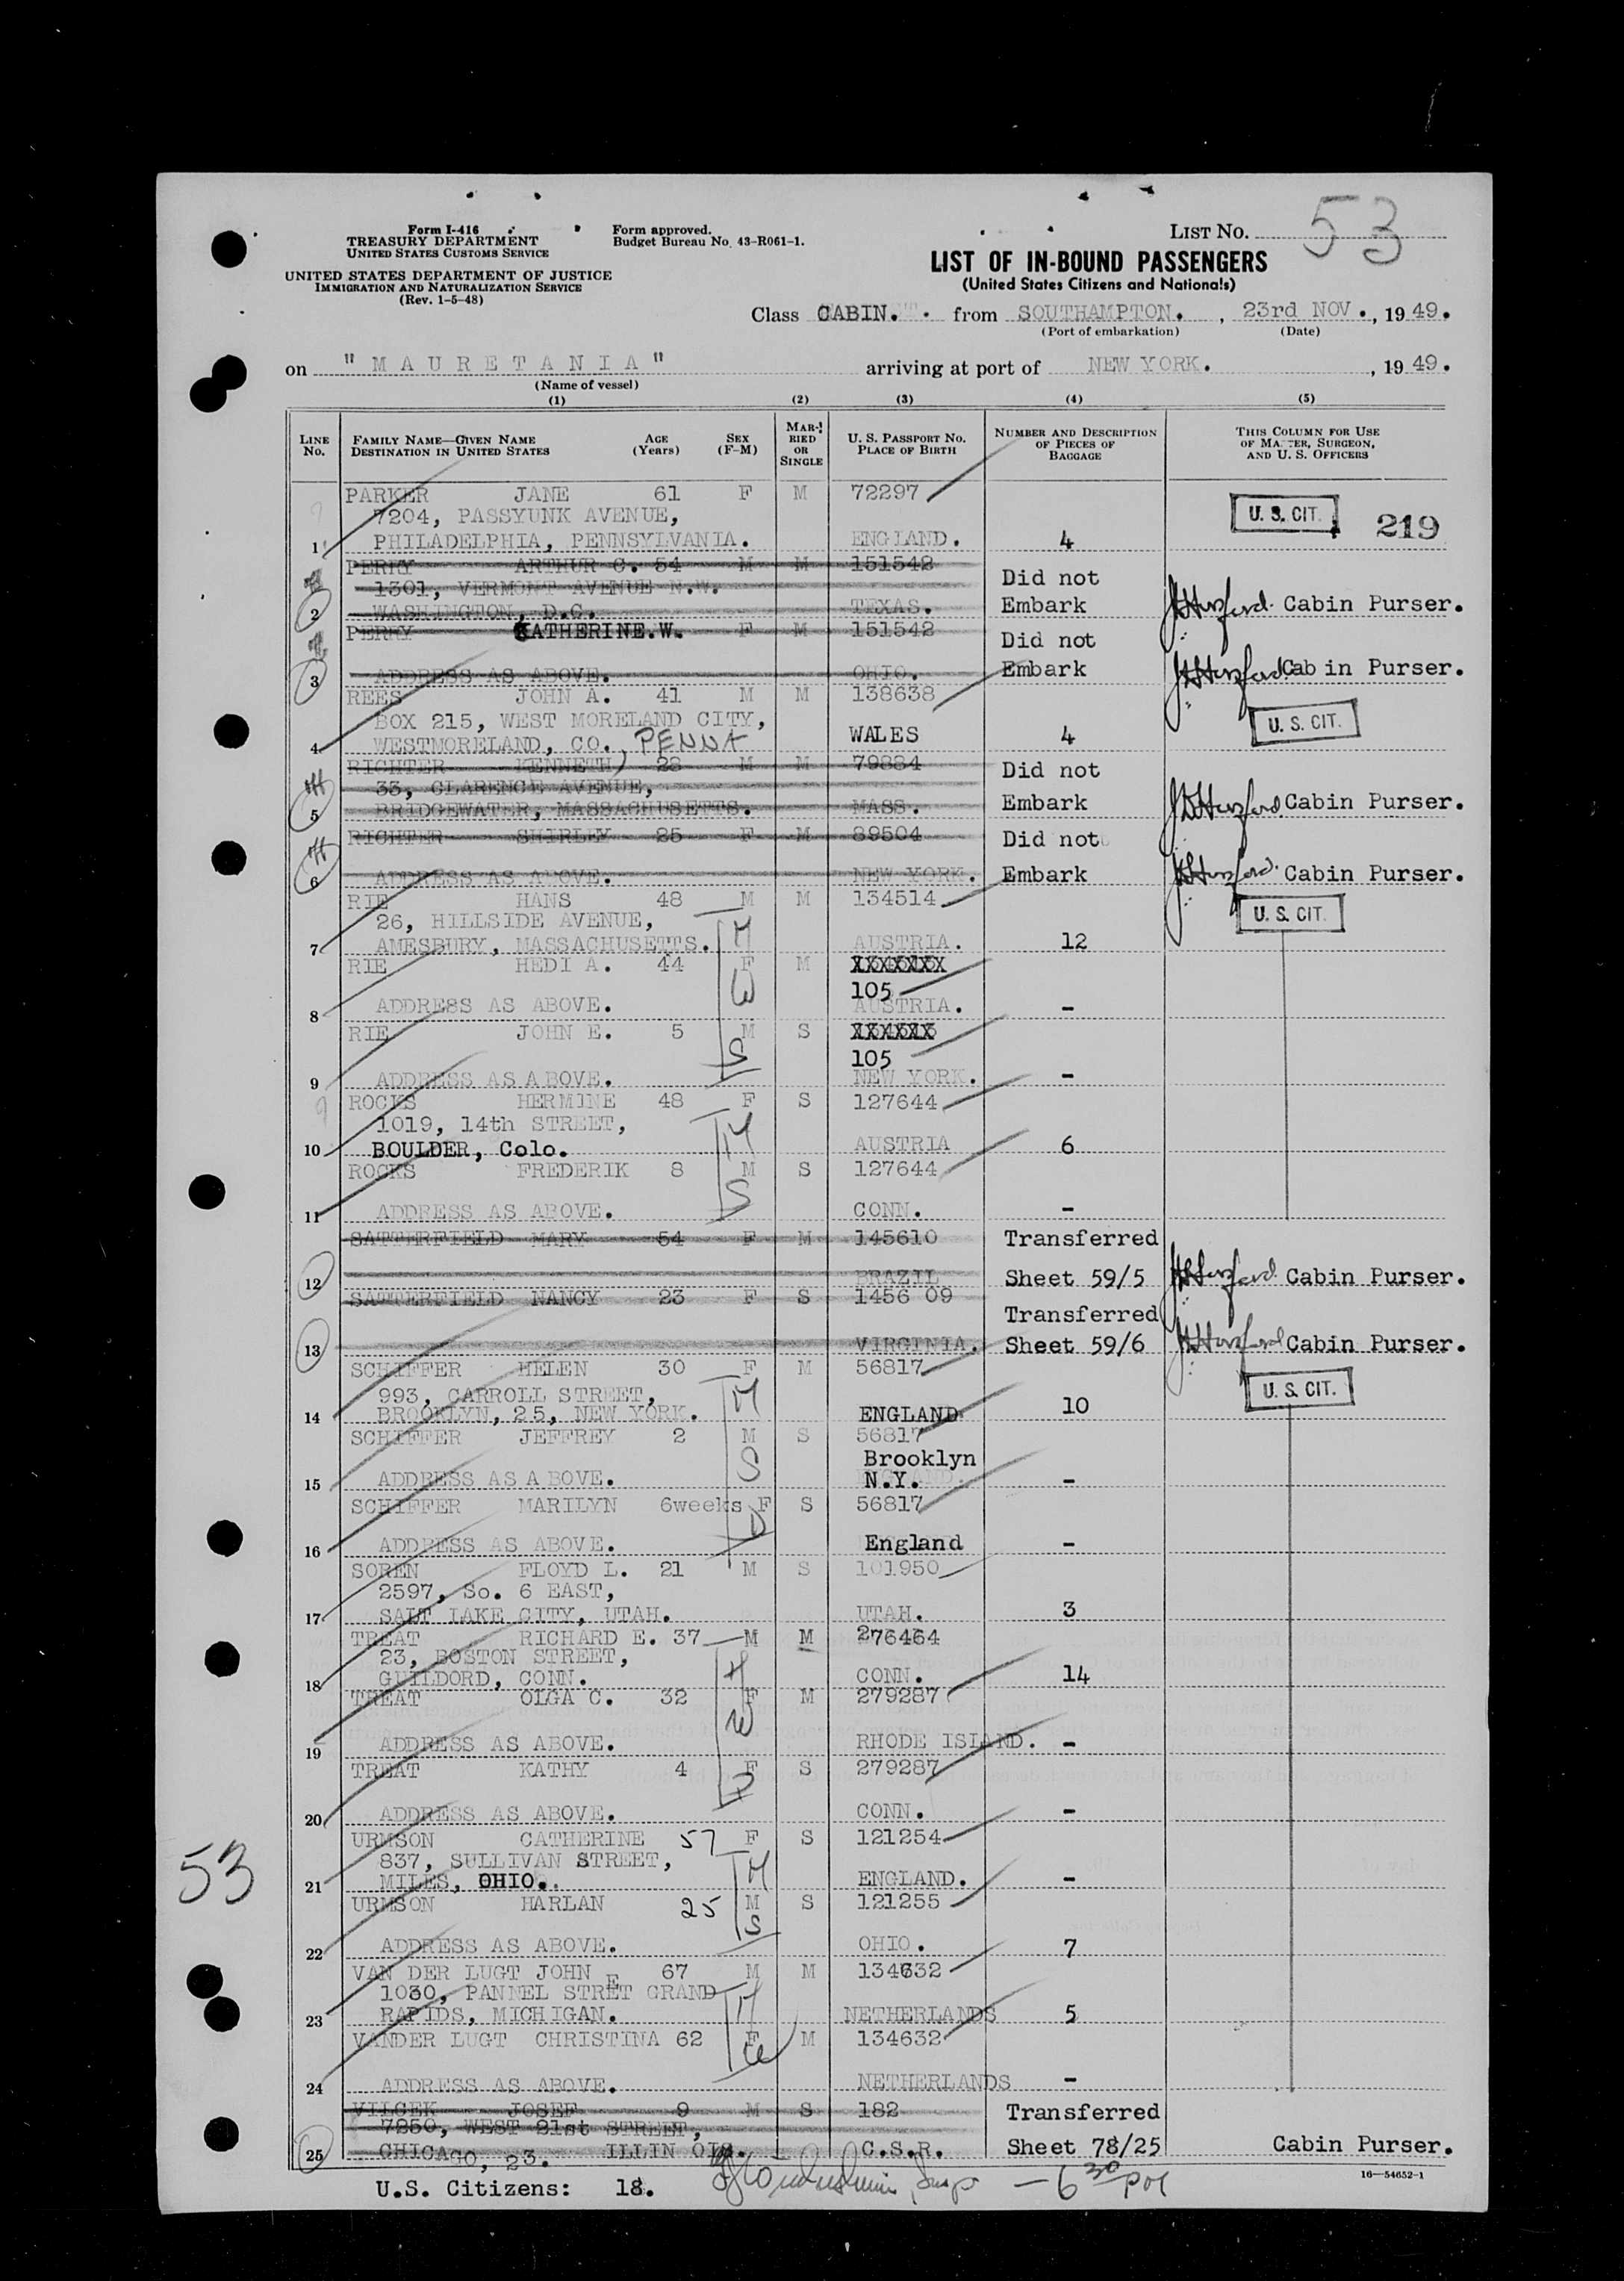 Form I-416
TREASURY DEPARTMENT
UNITED STATES CUSTOMS SERVICE
UNITED STATES DEPARTMENT OF JUSTICE
IMMIGRATION AND NATURALIZATION SERVICE
(Rev. 1-5-48)
Form approved.
Budget Bureau No. 43-R061-1.
LIST NO. 53
LIST OF IN-BOUND PASSENGERS
(United States Citizens and Nationals)
Class CABIN. from SOUTHAMPTON. , 23rd NOV., 1949.
(Port of embarkation) (Date)
on "MAURETANIA" arriving at port of NEW YORK. , 1949.
(Name of vessel)
(1) (2) (3) (4) (5)
LINE No. FAMILY NAME—GIVEN NAME DESTINATION IN UNITED STATES AGE (Years) SEX (F-M) MARRIED OR SINGLE U. S. PASSPORT NO. PLACE OF BIRTH NUMBER AND DESCRIPTION OF PIECES OF BAGGAGE THIS COLUMN FOR USE OF MASTER, SURGEON, AND U. S. OFFICERS
PARKER JANE 61 F M 72297
7204, PASSYUNK AVENUE, U. S. CIT. 219
1 PHILADELPHIA, PENNSYLVANIA. ENGLAND. 4
PERRY ARTHUR C. 54 M M 151542
1301, VERMONT AVENUE N.W. Did not
2 WASHINGTON, D.C. TEXAS. Embark Cabin Purser.
PERRY KATHERINE.W. F M 151542 Did not
3 ADDRESS AS ABOVE. OHIO. Embark Cab in Purser.
REES JOHN A. 41 M M 138638
BOX 215, WEST MORELAND CITY, U. S. CIT.
4 WESTMORELAND, CO., PENNA WALES 4
RICHTER KENNETH 28 M M 79884 Did not
33, CLARENCE AVENUE,
5 BRIDGEWATER, MASSACHUSETTS. MASS. Embark Cabin Purser.
RICHTER SHIRLEY 25 F M 89504 Did not
6 ADDRESS AS ABOVE. NEW YORK. Embark Cabin Purser.
RIE HANS 48 M M 134514
26, HILLSIDE AVENUE, H U. S. CIT.
7 AMESBURY, MASSACHUSETTS. AUSTRIA. 12
RIE HEDI A. 44 F M XXXXXXX
W 105
8 ADDRESS AS ABOVE. AUSTRIA. -
RIE JOHN E. 5 M S XXXXXX
S 105
9 ADDRESS AS ABOVE. NEW YORK. -
ROCKS HERMINE 48 F S 127644
1019, 14th STREET, M
10 BOULDER, Colo. AUSTRIA 6
ROCKS FREDERIK 8 M S 127644
S
11 ADDRESS AS ABOVE. CONN. -
SATTERFIELD MARY 54 F M 145610 Transferred
12 BRAZIL Sheet 59/5 Cabin Purser.
SATTERFIELD NANCY 23 F S 1456 09
Transferred
13 VIRGINIA. Sheet 59/6 Cabin Purser.
SCHIFFER HELEN 30 F M 56817
993, CARROLL STREET, M U. S. CIT.
14 BROOKLYN, 25, NEW YORK. ENGLAND 10
SCHIFFER JEFFREY 2 M S 56817
S Brooklyn
15 ADDRESS AS ABOVE. N.Y. -
SCHIFFER MARILYN 6weeks F S 56817
D
16 ADDRESS AS ABOVE. England -
SOREN FLOYD L. 21 M S 101950
2597, So. 6 EAST,
17 SALT LAKE CITY, UTAH. UTAH. 3
TREAT RICHARD E. 37 M M 276464
23, BOSTON STREET, H
18 GUILDORD, CONN. CONN. 14
TREAT OLGA C. 32 F M 279287
W
19 ADDRESS AS ABOVE. RHODE ISLAND. -
TREAT KATHY 4 F S 279287
D
20 ADDRESS AS ABOVE. CONN. -
URMSON CATHERINE 57 F S 121254
837, SULLIVAN STREET, M
21 MILES, OHIO. ENGLAND. -
URMSON HARLAN 25 M S 121255
S
22 ADDRESS AS ABOVE. OHIO. 7
VAN DER LUGT JOHN E 67 M M 134632
1030, PANNEL STRET GRAND H
23 RAPIDS, MICHIGAN. NETHERLANDS 5
VANDER LUGT CHRISTINA 62 F M 134632
W
24 ADDRESS AS ABOVE. NETHERLANDS -
VILCEK JOSEF 9 M S 182 Transferred
7250, WEST 21st STREET,
25 CHICAGO, 23. ILLIN OIS. C.S.R. Sheet 78/25 Cabin Purser.
16—54652-1
U.S. Citizens: 18. — 6 30
53